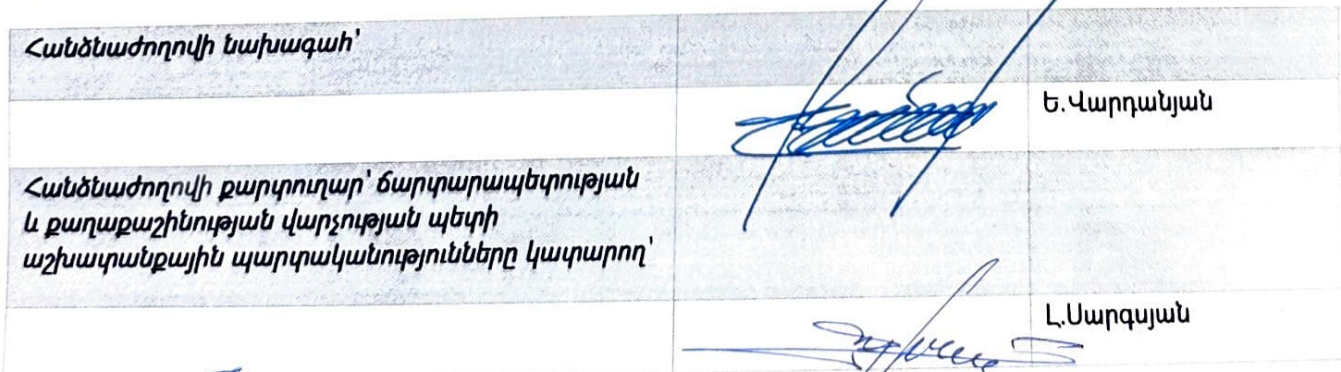 Հանձնաժողովի նախագահ՝
Ե.Վարդանյան
Հանձնաժողովի քարտուղար՝ ճարտարապետության
և քաղաքաշինության վարչության պետի
աշխատանքային պարտականությունները կատարող՝
Լ.Սարգսյան